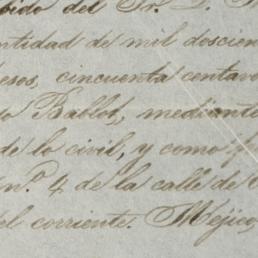 bido del Sr. D.
ntidad de mil doscien
esos, cincuenta centavo
o Bablot, mediante
de lo civil, y como
n.º 4 de la calle de
el corriente. Méjico,